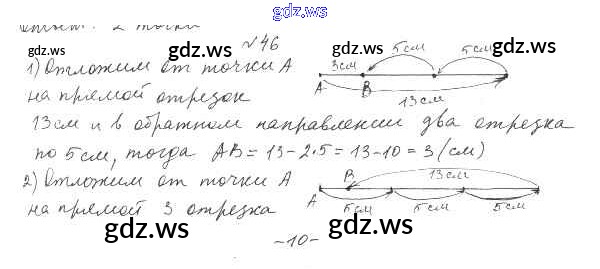 gdz.ws
Ответ: 2 точки
gdz.ws gdz.ws gdz.ws
№46
1) Отложим от точки А
на прямой отрезок
3см 5см 5см
А В
13см
13 см и в обратном направлении два отрезка
по 5см, тогда АВ = 13 - 2·5 = 13 - 10 = 3 (см)
gdz.ws gdz.ws gdz.ws
2) Отложим от точки А
на прямой 3 отрезка
В 13см
А
5см 5см 5см
gdz.ws gdz.ws gdz.ws
-10-